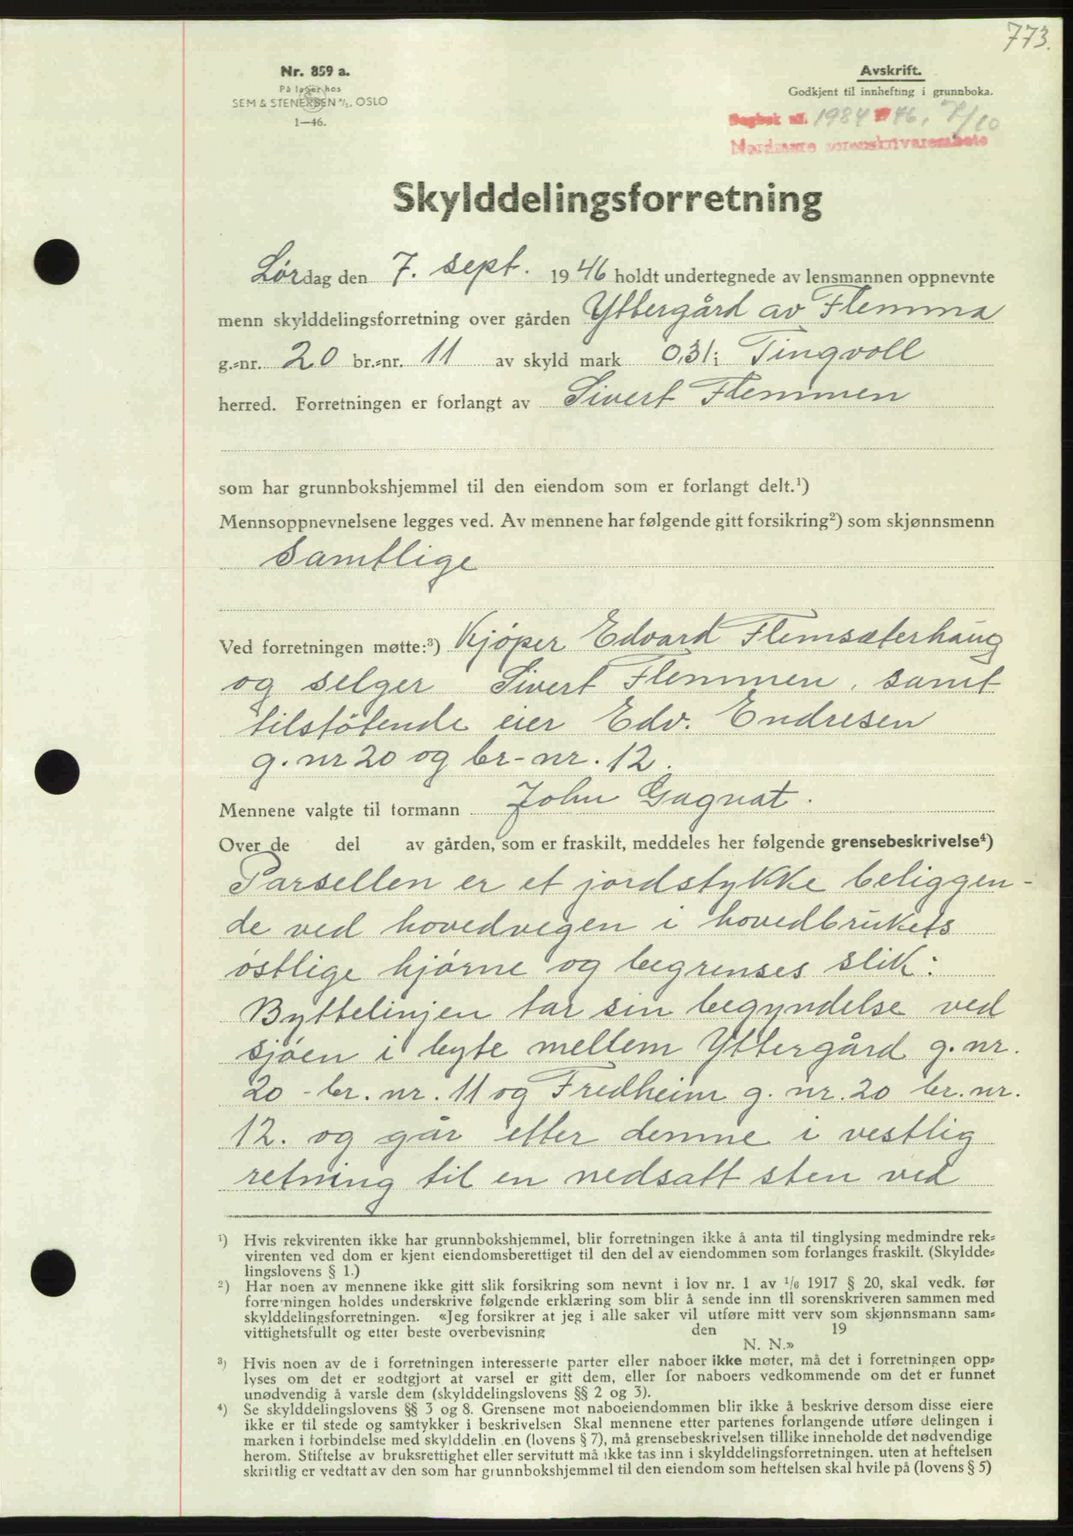 773.
Nr. 859 a.
På lager hos
SEM & STENERSEN A/S, OSLO
1—46.
Avskrift.
Godkjent til innhefting i grunnboka.
Dagbok nr. 1984 1946, 7/10
Nordmøre sorenskriverembete
Skylddelingsforretning
Lørdag den 7. sept. 1946 holdt undertegnede av lensmannen oppnevnte
menn skylddelingsforretning over gården Yttergård av Flemma
g.-nr. 20 br.-nr. 11 av skyld mark 0,31 i Tingvoll
herred. Forretningen er forlangt av Sivert Flemmen
som har grunnbokshjemmel til den eiendom som er forlangt delt.¹)
Mennsoppnevnelsene legges ved. Av mennene har følgende gitt forsikring²) som skjønnsmenn
Samtlige
Ved forretningen møtte:³) Kjøper Edvard Flemsæterhaug
og selger Sivert Flemmen, samt
tilstøtende eier Edv. Endresen
g. nr 20 og br-nr. 12.
Mennene valgte til formann John Gagnat.
Over de del av gården, som er fraskilt, meddeles her følgende grensebeskrivelse⁴)
Parsellen er et jordstykke beliggen-
de ved hovedvegen i hovedbrukets
østlige hjørne og begrenses slik:
Byttelinjen tar sin begyndelse ved
sjøen i byte mellem Yttergård g. nr.
20 - br. nr. 11 og Fredheim g. nr. 20 br. nr.
12. og går etter denne i vestlig
retning til en nedsatt sten ved
¹) Hvis rekvirenten ikke har grunnbokshjemmel, blir forretningen ikke å anta til tinglysing medmindre rek-
virenten ved dom er kjent eiendomsberettiget til den del av eiendommen som forlanges fraskilt. (Skyldde-
lingslovens § 1.)
²) Har noen av mennene ikke gitt slik forsikring som nevnt i lov nr. 1 av 1/6 1917 § 20, skal vedk. før
forretningen holdes underskrive følgende erklæring som blir å sende inn til sorenskriveren sammen med
skylddelingsforretningen. «Jeg forsikrer at jeg i alle saker vil utføre mitt verv som skjønnsmann sam-
vittighetsfullt og etter beste overbevisning den 19
N. N.»
³) Hvis noen av de i forretningen interesserte parter eller naboer ikke møter, må det i forretningen opp-
lyses om det er godtgjort at varsel er gitt dem, eller for naboers vedkommende om det er funnet
unødvendig å varsle dem (skylddelingslovens §§ 2 og 3).
⁴) Se skylddelingslovens §§ 3 og 8. Grensene mot naboeiendommen blir ikke å beskrive dersom disse eiere
ikke er til stede og samtykker i beskrivelsen Skal mennene etter partenes forlangende utføre delingen i
marken i forbindelse med skylddelin en (lovens § 7), må grensebeskrivelsen tillike inneholde det nødvendige
herom. Stiftelse av bruksrettighet eller servitutt må ikke tas inn i skylddelingsforretningen. uten at heftelsen
skriftlig er vedtatt av den som har grunnbokshjemmel til den eiendom som heftelsen skal hvile på (lovens § 5)